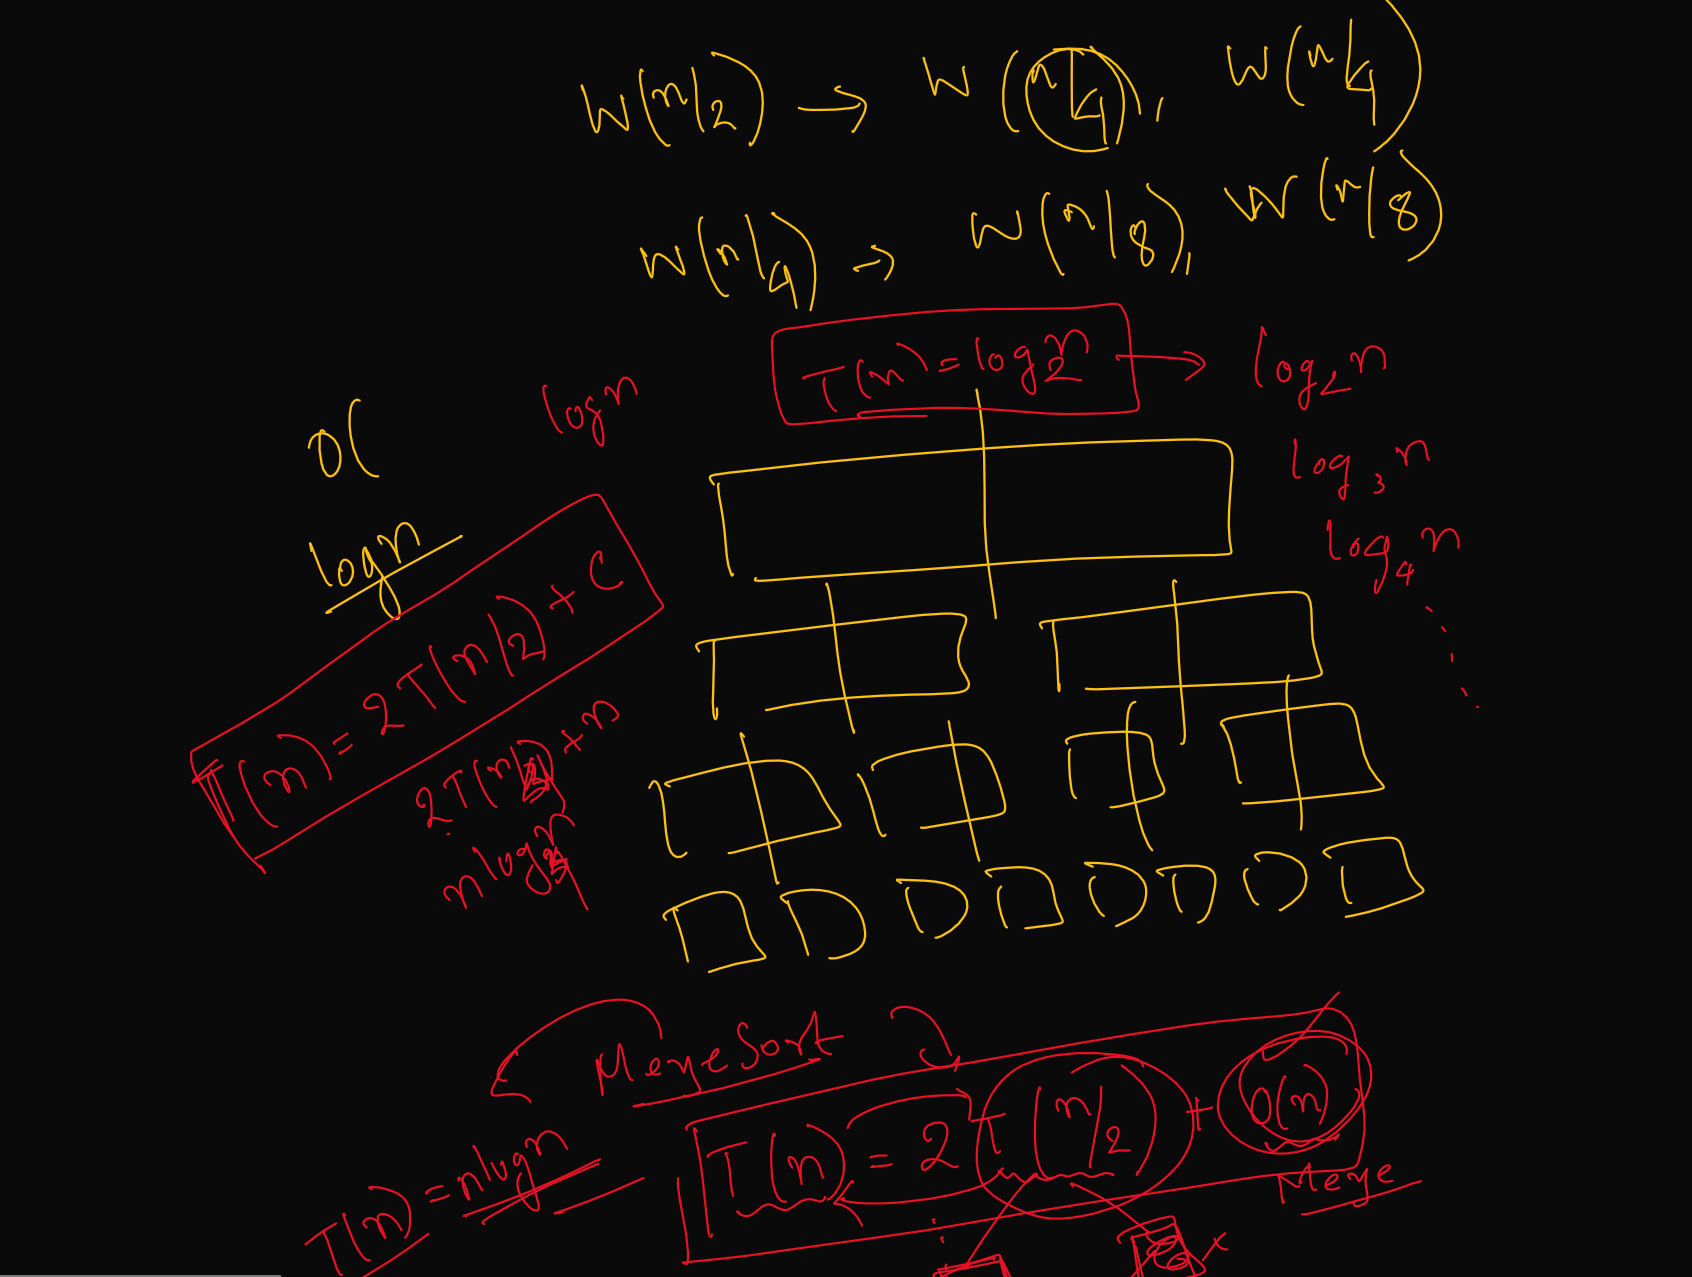 W(n/2) → W(n/4), W(n/4)
W(n/4) → W(n/8), W(n/8)
T(n) = log₂n → log₂n
log n
log₃n
O(
log n
log₄n
T(n) = 2T(n/2) + C
2T(n/2) + n
n log n
MergeSort
T(n) = 2T(n/2) + O(n)
Merge
T(n) = n log n